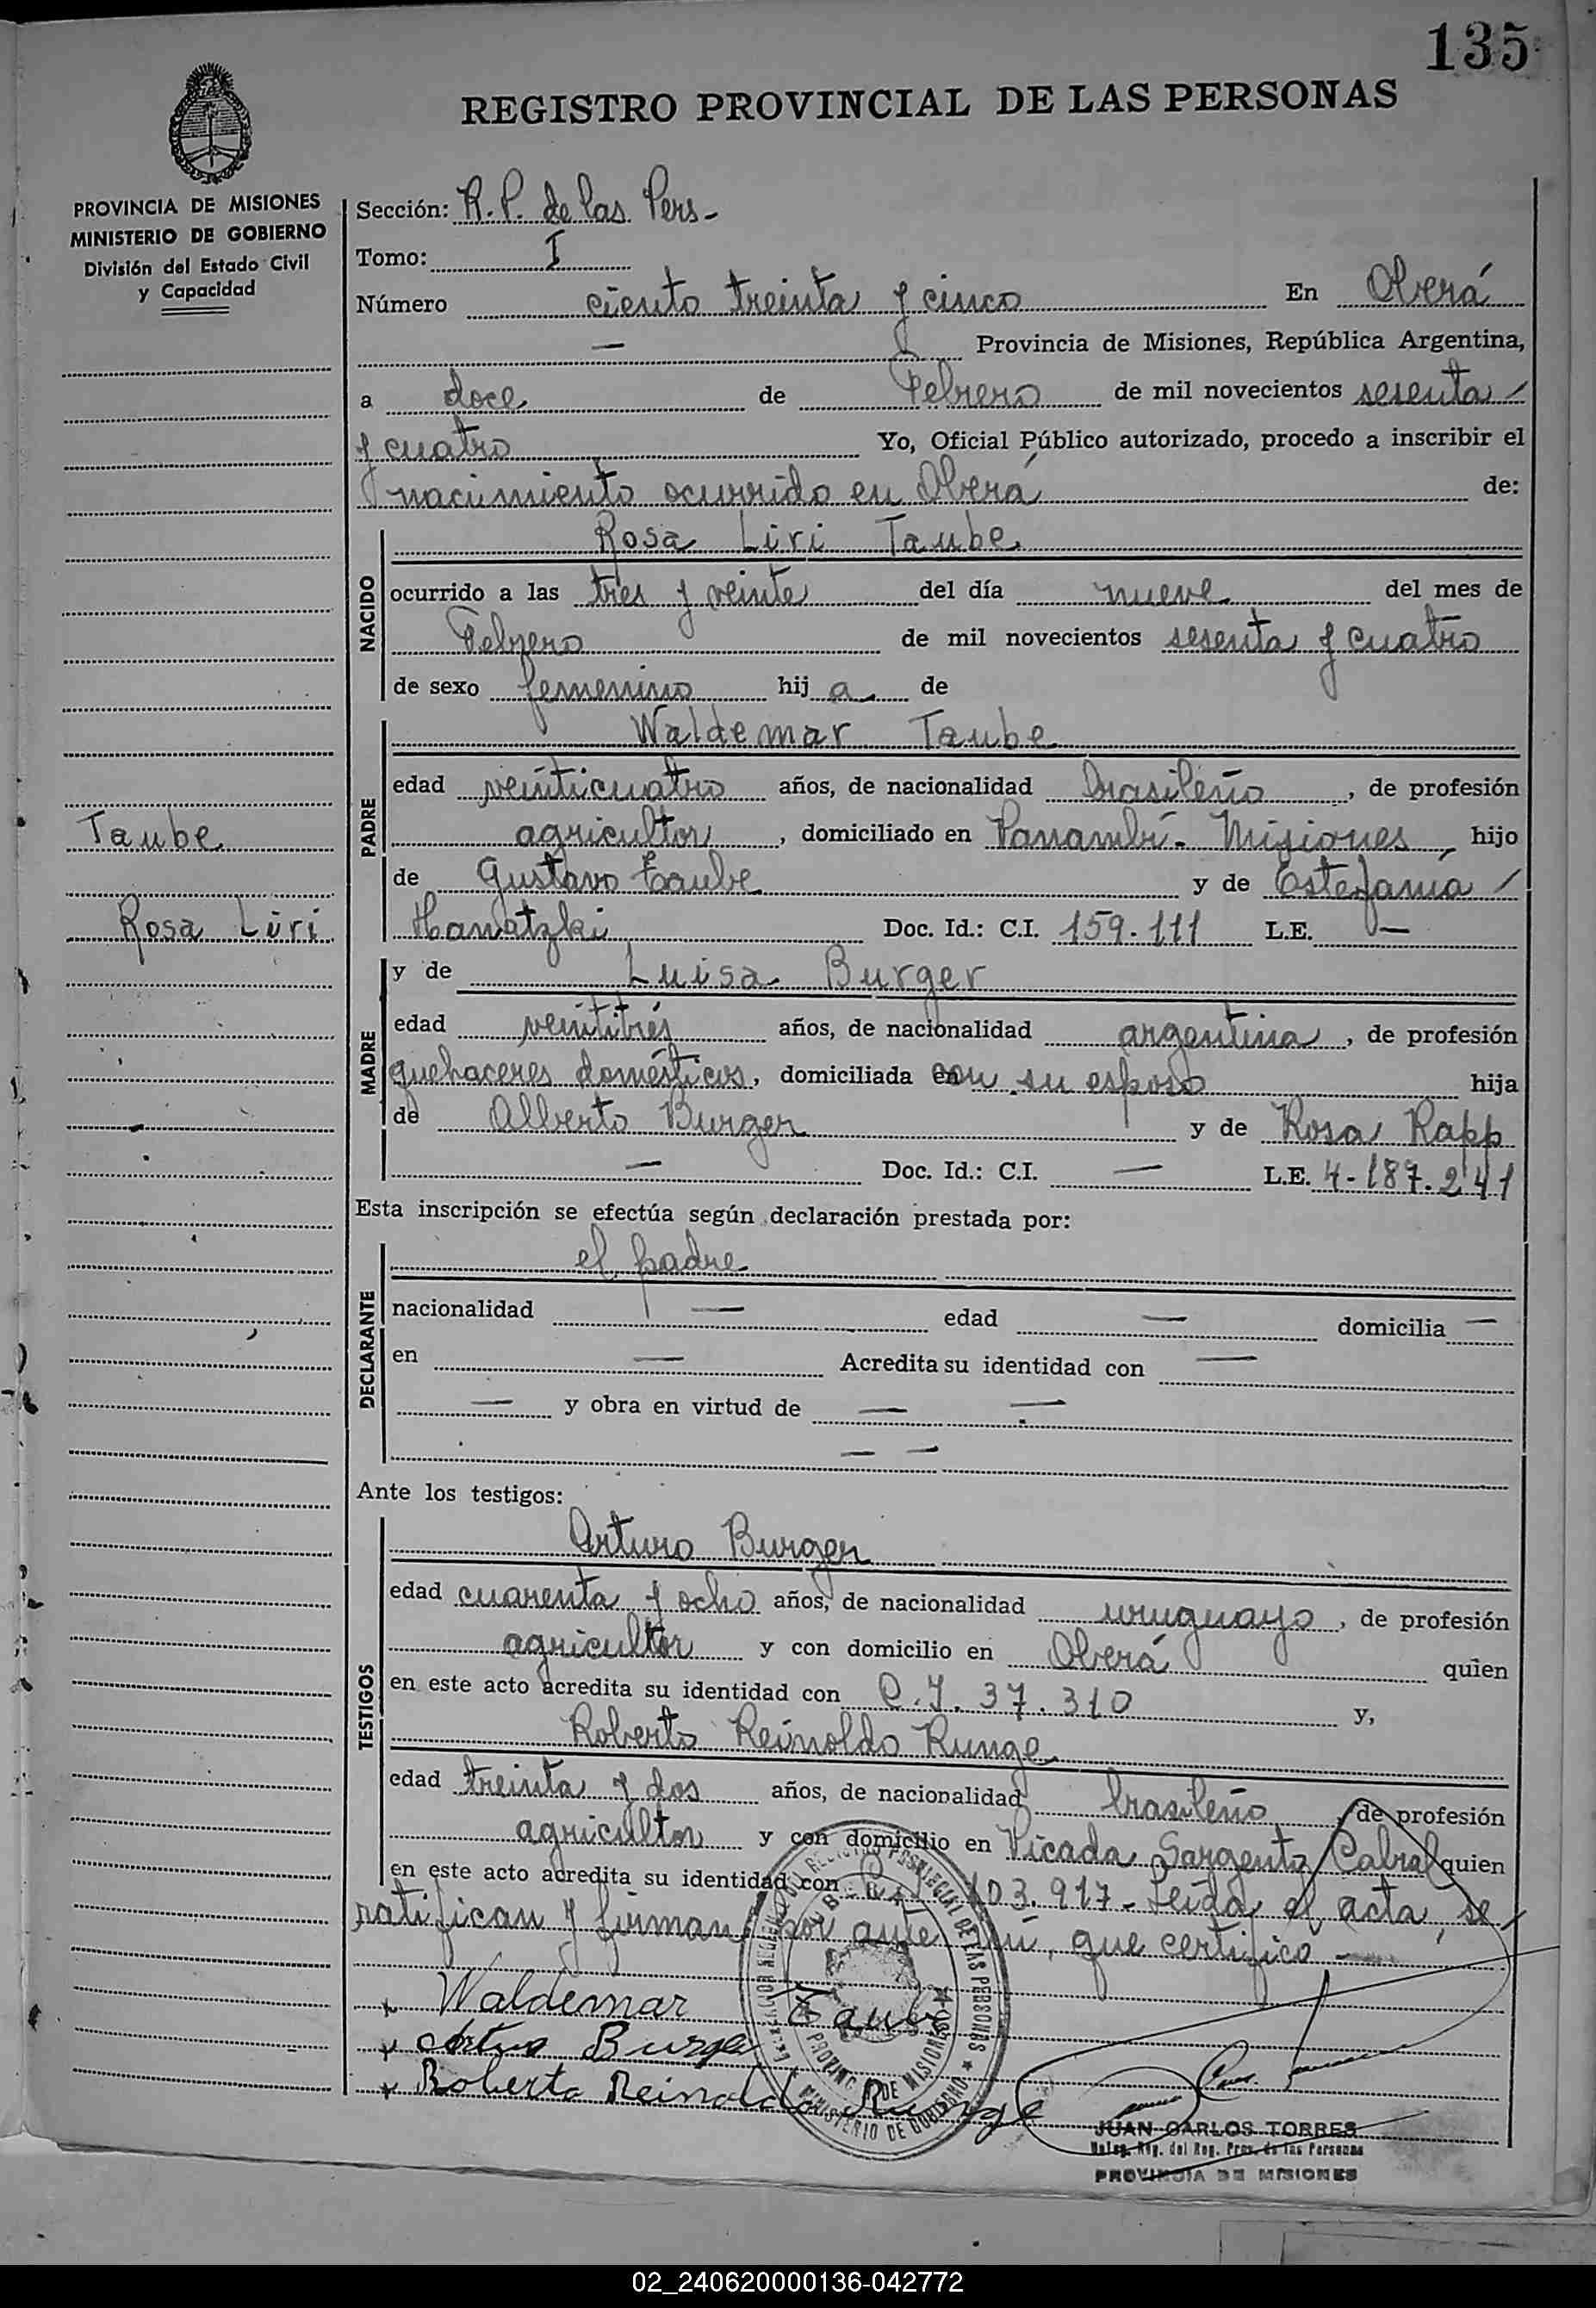 135
REGISTRO PROVINCIAL DE LAS PERSONAS
PROVINCIA DE MISIONES
MINISTERIO DE GOBIERNO
División del Estado Civil
y Capacidad
Sección: R. P. de las Pers -
Tomo: I
Número ciento treinta y cinco En Oberá
— Provincia de Misiones, República Argentina,
a doce de Febrero de mil novecientos sesenta /
y cuatro Yo, Oficial Público autorizado, procedo a inscribir el
nacimiento ocurrido en Oberá de:
NACIDO
Rosa Liri Taube
ocurrido a las tres y veinte del día nueve del mes de
Febrero de mil novecientos sesenta y cuatro
de sexo femenino hij a de
PADRE
Waldemar Taube
edad veinticuatro años, de nacionalidad brasileño, de profesión
agricultor, domiciliado en Panambí - Misiones hijo
de Gustavo Taube y de Estefanía /
Hawatzki Doc. Id.: C.I. 159.111 L.E. —
Taube
Rosa Liri
MADRE
y de Luisa Burger
edad veintitrés años, de nacionalidad argentina, de profesión
quehaceres domésticos, domiciliada con su esposo hija
de Alberto Burger y de Rosa Rapp
— Doc. Id.: C.I. — L.E. 4-187.241
Esta inscripción se efectúa según declaración prestada por:
DECLARANTE
el padre
nacionalidad — edad — domicilia —
en — Acredita su identidad con —
— y obra en virtud de — —
— —
Ante los testigos:
TESTIGOS
Arturo Burger
edad cuarenta y ocho años, de nacionalidad uruguayo, de profesión
agricultor y con domicilio en Oberá quien
en este acto acredita su identidad con C.I. 37.310 y,
Roberto Reinoldo Runge
edad treinta y dos años, de nacionalidad brasileño, de profesión
agricultor y con domicilio en Picada Sargento Cabral quien
en este acto acredita su identidad con 103.917 - Leída el acta, se /
ratifican y firman por ante mí, que certifico -
x Waldemar Taube
x Arturo Burger
x Roberto Reinoldo Runge
PROVINCIA DE MISIONES
MINISTERIO DE GOBIERNO
JUAN CARLOS TORRES
del Reg. Prov. de las Personas
PROVINCIA DE MISIONES
02_240620000136-042772